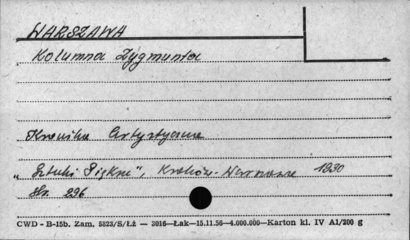 WARSZAWA
Kolumna Zygmunta
Kronika Artystyczna
„Sztuki Piękne", Kraków-Warszawa 1930
str. 296
CWD - B-15b. Zam. 5823/S/Łż — 3016—Łak—15.11.56—4.000.000—Karton kl. IV A1/200 g